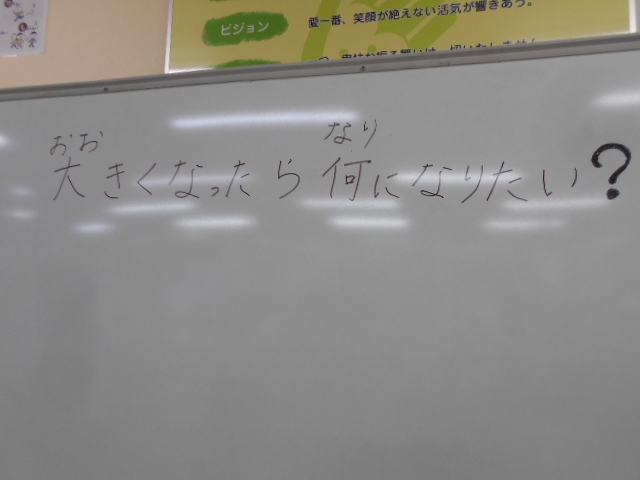 ビジョン
愛一番、笑顔が絶えない活気が響きあう。
おお なり
大きくなったら何になりたい?